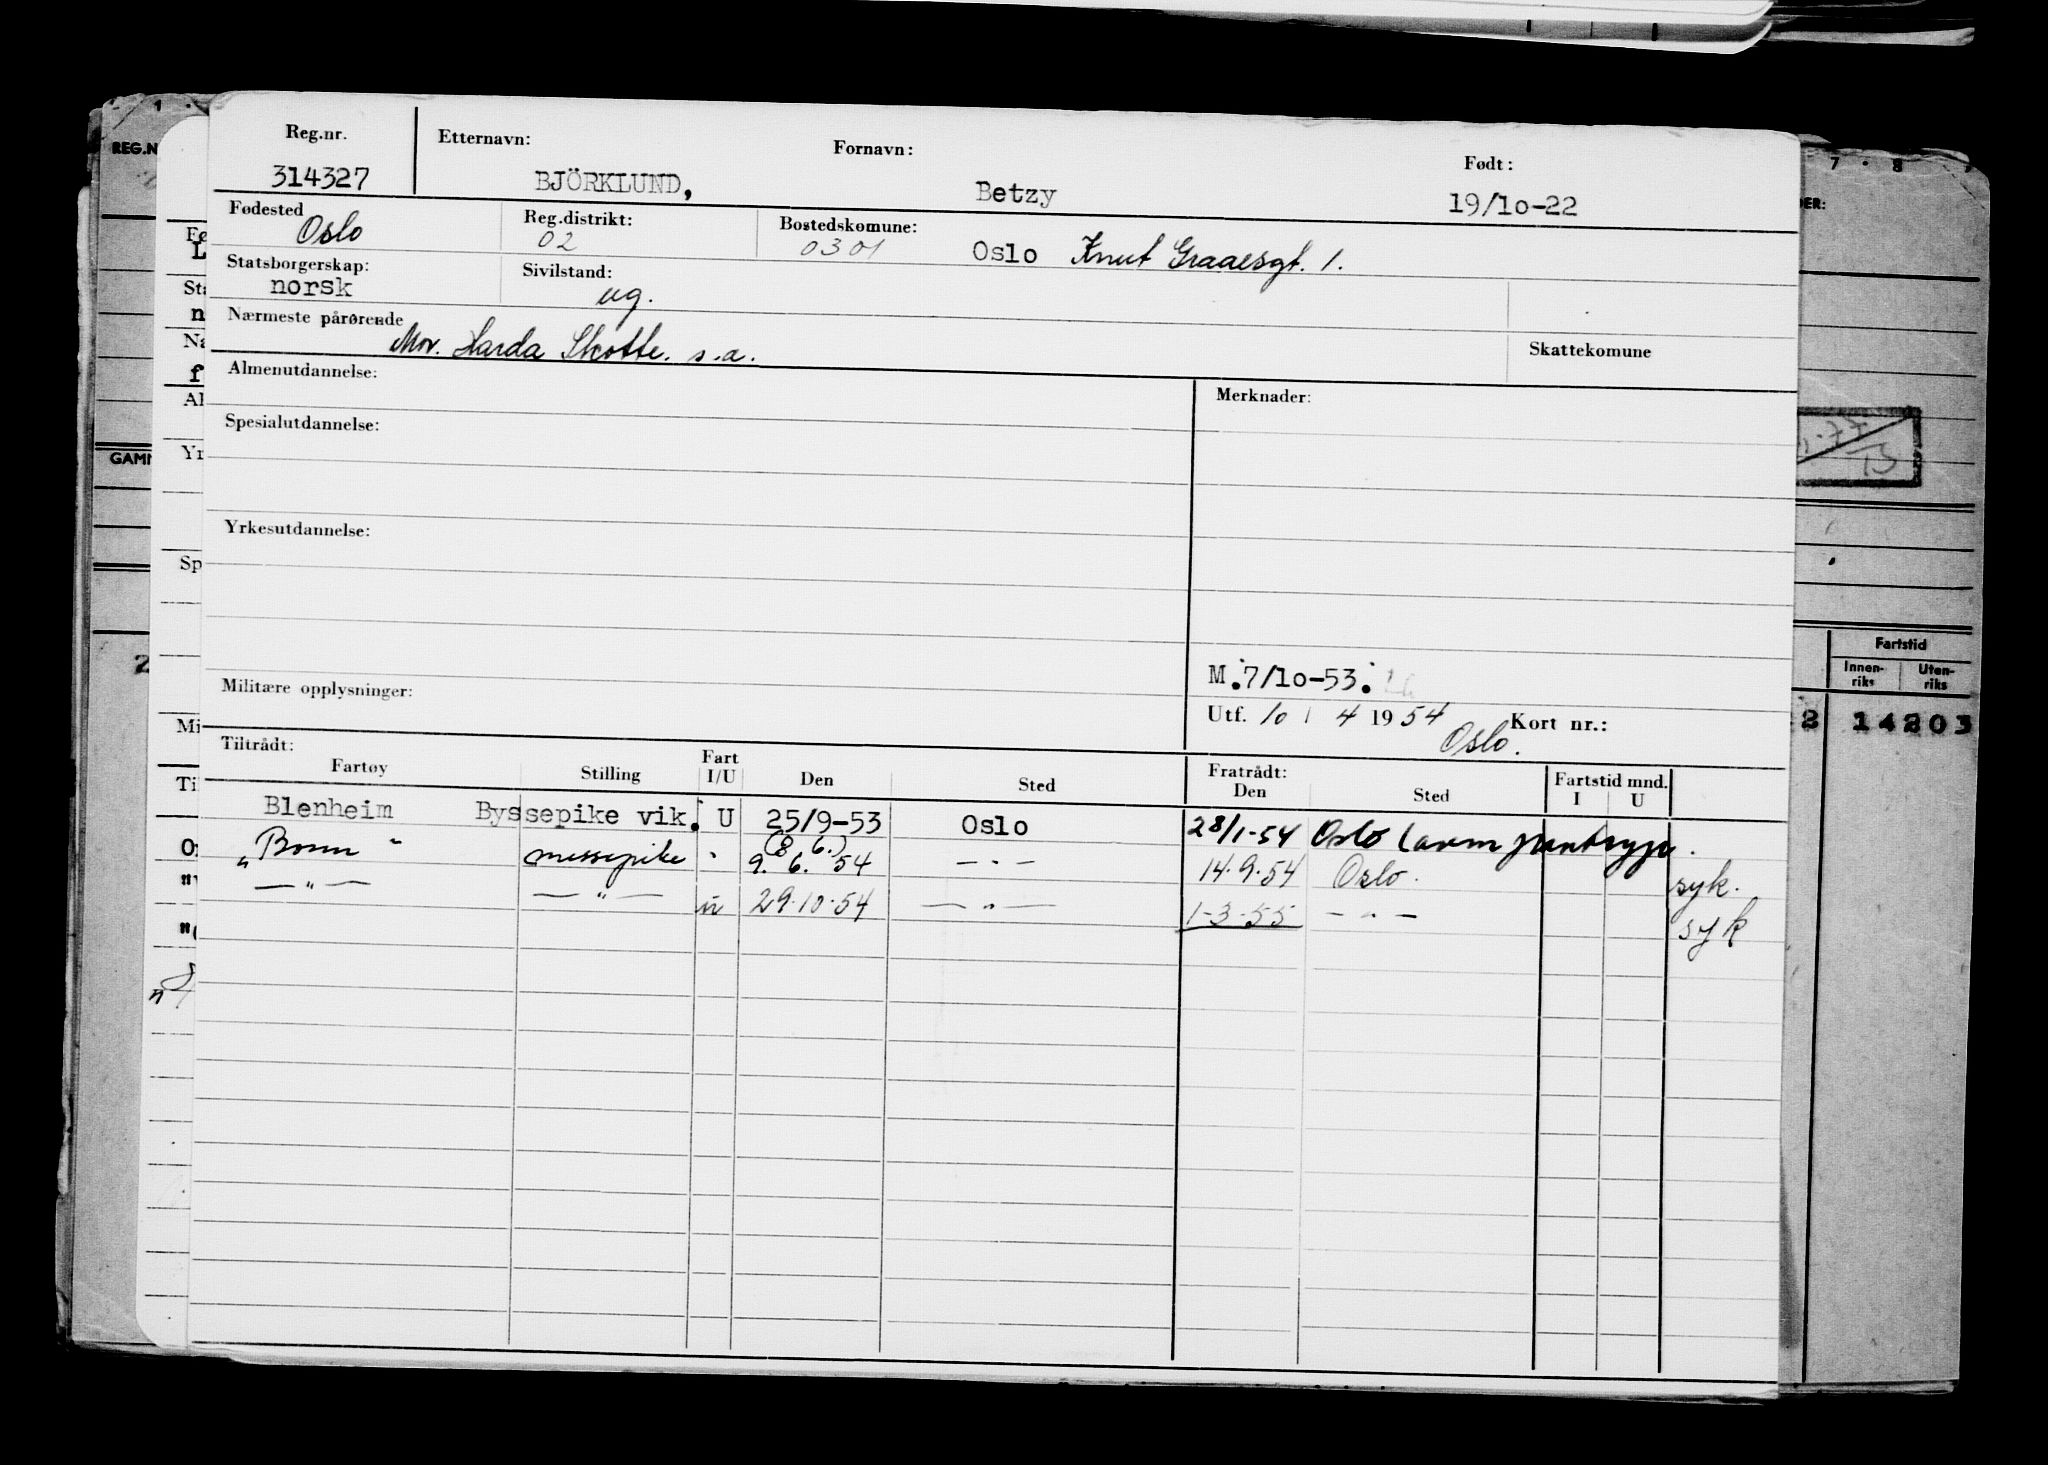 Reg.nr. Etternavn: Fornavn: Født:
314327 BJÖRKLUND, Betzy 19/10-22
Fødested Reg.distrikt: Bostedskomune:
Oslo 02 0301 Oslo Knut Graaesgt. 1.
Statsborgerskap: Sivilstand:
norsk ug.
Nærmeste pårørende Skattekomune
Mor. Harda Skotte. s.a.
Almenutdannelse: Merknader:
Spesialutdannelse:
Yrkesutdannelse:
M.7/10-53.
Militære opplysninger:
Utf. 10 / 4 1954 Kort nr.:
Oslo.
Tiltrådt: Fratrådt:
Fartøy Stilling Fart I/U Den Sted Den Sted Fartstid mnd. I U
Blenheim Byssepike vik. U 25/9-53 Oslo 28/1-54 Oslo
(8 6.)
"Bomm" messepike " 9. 6. 54 — " — 14.9.54 Oslo. syk.
— " — — " — u 29.10.54 — " — 1-3-55 — " — syk
REG.N
GAMN
Fartstid
Innen-riks Uten-riks
2 14203